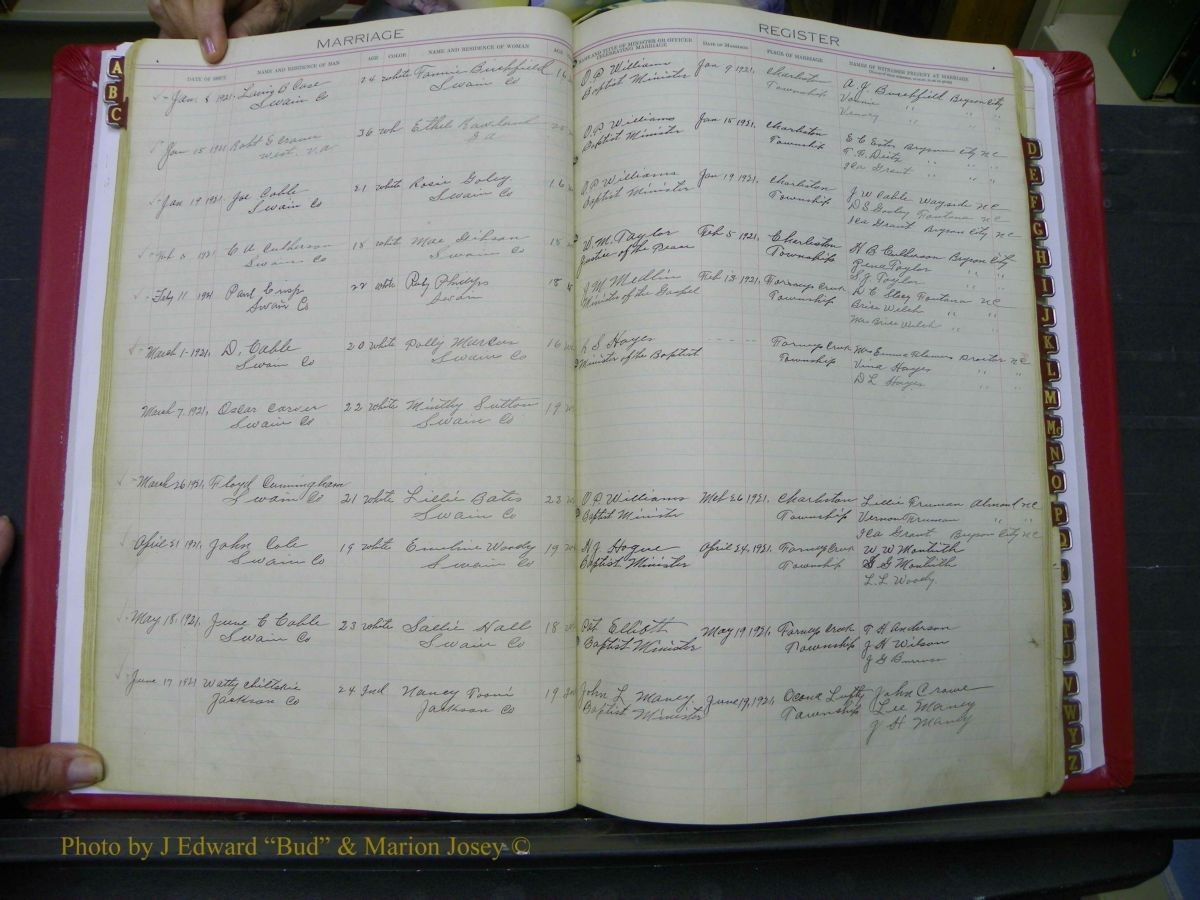 MARRIAGE
REGISTER
DATE OF ISSUE NAME AND RESIDENCE OF MAN AGE COLOR NAME AND RESIDENCE OF WOMAN AGE
NAME AND TITLE OF MINISTER OR OFFICER CELEBRATING MARRIAGE DATE OF MARRIAGE PLACE OF MARRIAGE NAMES OF WITNESSES PRESENT AT MARRIAGE
Jan. 8 1921, 24 white Fannie Burchfield 16 O P Williams Jan 9 1921, Charleston A. J. Burchfield Bryson City
Swain Co Swain Co Baptist Minister Township Vonnie " " "
" " "
Jan 15 1921 Robt G 36 wh Ethel O. P. Williams Jan 15 1921, Charleston E C Bryson City N C
West. V.A Baptist Minister Township " " "
Ica Grant " " "
Jan 19 1921, Joe Cable 21 white Rosie Goley 16 O P Williams Jan 19 1921, Charleston J W Cable Wayside N C
Swain Co Swain Co Baptist Minister Township D S Fontana N C
Ica Grant Bryson City N C
Feb 5 1921, C A Culberson 18 white Mae Gibson 18 W. M. Taylor Feb 5 1921, Charleston H B Culberson Bryson City
Swain Co Swain Co Justice of the Peace Township Rena Taylor " "
S J Taylor " "
Feby 11 1921 Paul Crisp 22 white Ruby Phillips 18 J M Medlin Feb 13 1921, Forneys Creek Fontana N C
Swain Co Swain Minister of the Gospel Township Brice Welch " "
Mrs Brice Welch " "
March 1 1921, D. Cable 20 white Polly Marcus 16 S Hayes Forneys Creek Mrs Emma Proctor N C
Swain Co Swain Co Minister of the Baptist Township Vina Hayes " "
D L Hayes " "
March 7, 1921, Oscar Carver 22 white Sutton 19
Swain Co Swain Co
March 26 1921, Floyd Cunningham
Swain Co 21 white Lillie Bates 23 O P Williams Mch 26 1921, Charleston Lillie Truman Almond N C
Swain Co Baptist Minister Township Vernon Truman " "
Ica Grant Bryson City N C
April 21 1921, John Cole 19 white Emeline Woody 19 H J Hogue April 24, 1921, Forneys Creek W. W Monteith
Swain Co Swain Co Baptist Minister Township S G Monteith
L. L Woody
May 18, 1921, June C Cable 23 white Sallie Hall 18 Pat Elliott May 19 1921, Forneys Creek T H Anderson
Swain Co Swain Co Baptist Minister Township J H Wilson
J G
June 17 1921 Watty Chiltoskie 24 Ind Nancy Tooni 19 Ind John L Maney June 19, 1921, Ocona Lufty John Crowe
Jackson Co Jackson Co Baptist Minister Township Lee Maney
J H Maney
A
B
C
D
E
F
G
H
I
J
K
L
M
Mc
N
O
P
Q
T U
V
W Y
Z
Photo by J Edward “Bud” & Marion Josey ©